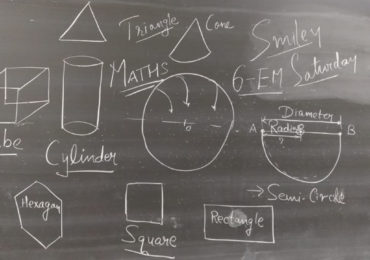 Triangle
Cone
Smiley
MATHS
6-EM Saturday
Diameter
A Radius B
?
be
Cylinder
Hexagon
→ Semi-Circle
Square
Rectangle